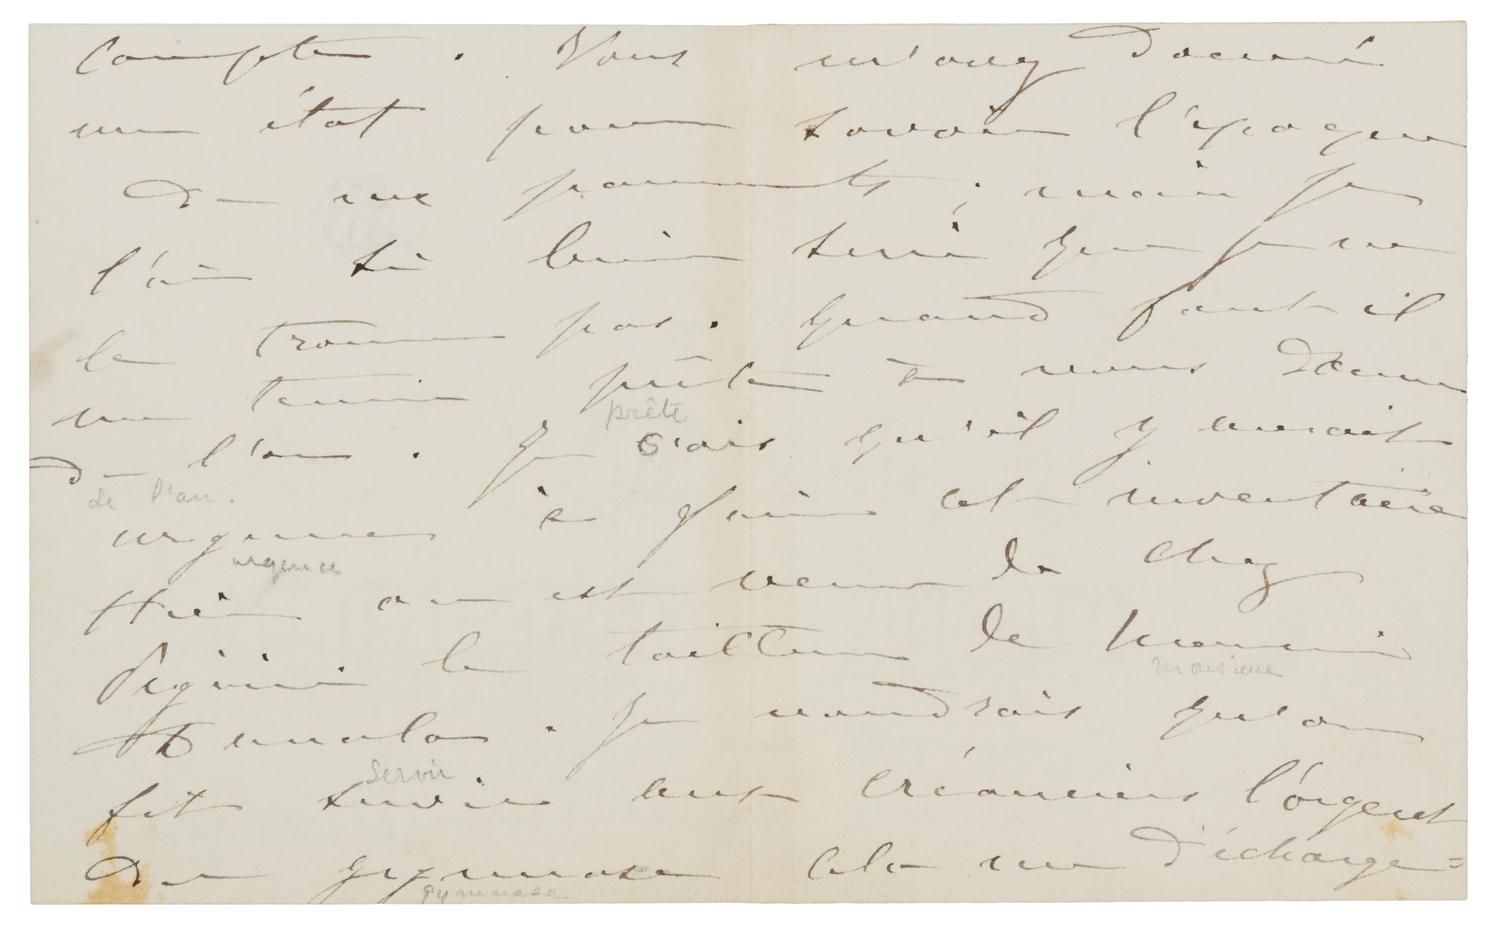 compte. Vous m'avez donné
un état pour savoir l'époque
de me paiements ; mais je
l'ai si bien serré que je ne
le trouve pas. Quand faut il
me tenir prête à vous donner
prête
de l'an. Je sais qu'il y avait
de l'an.
urgence à faire cet inventaire
urgence
Hier on est venu de chez
le tailleur de
monsieur
Damala. Je voudrais qu'on
servir
fit servir aux créanciers l'argent
du gymnase cela me d'écharge=
gymnase